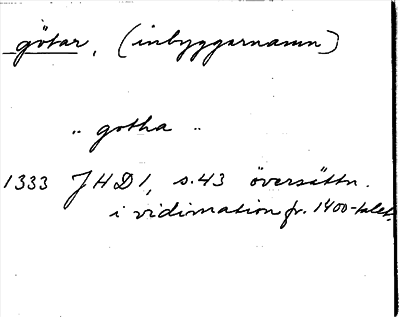 götar, (inbyggarnamn)
„ gotha „
1333 JHD 1, s. 43 översättn.
i vidimation fr. 1400-talet.